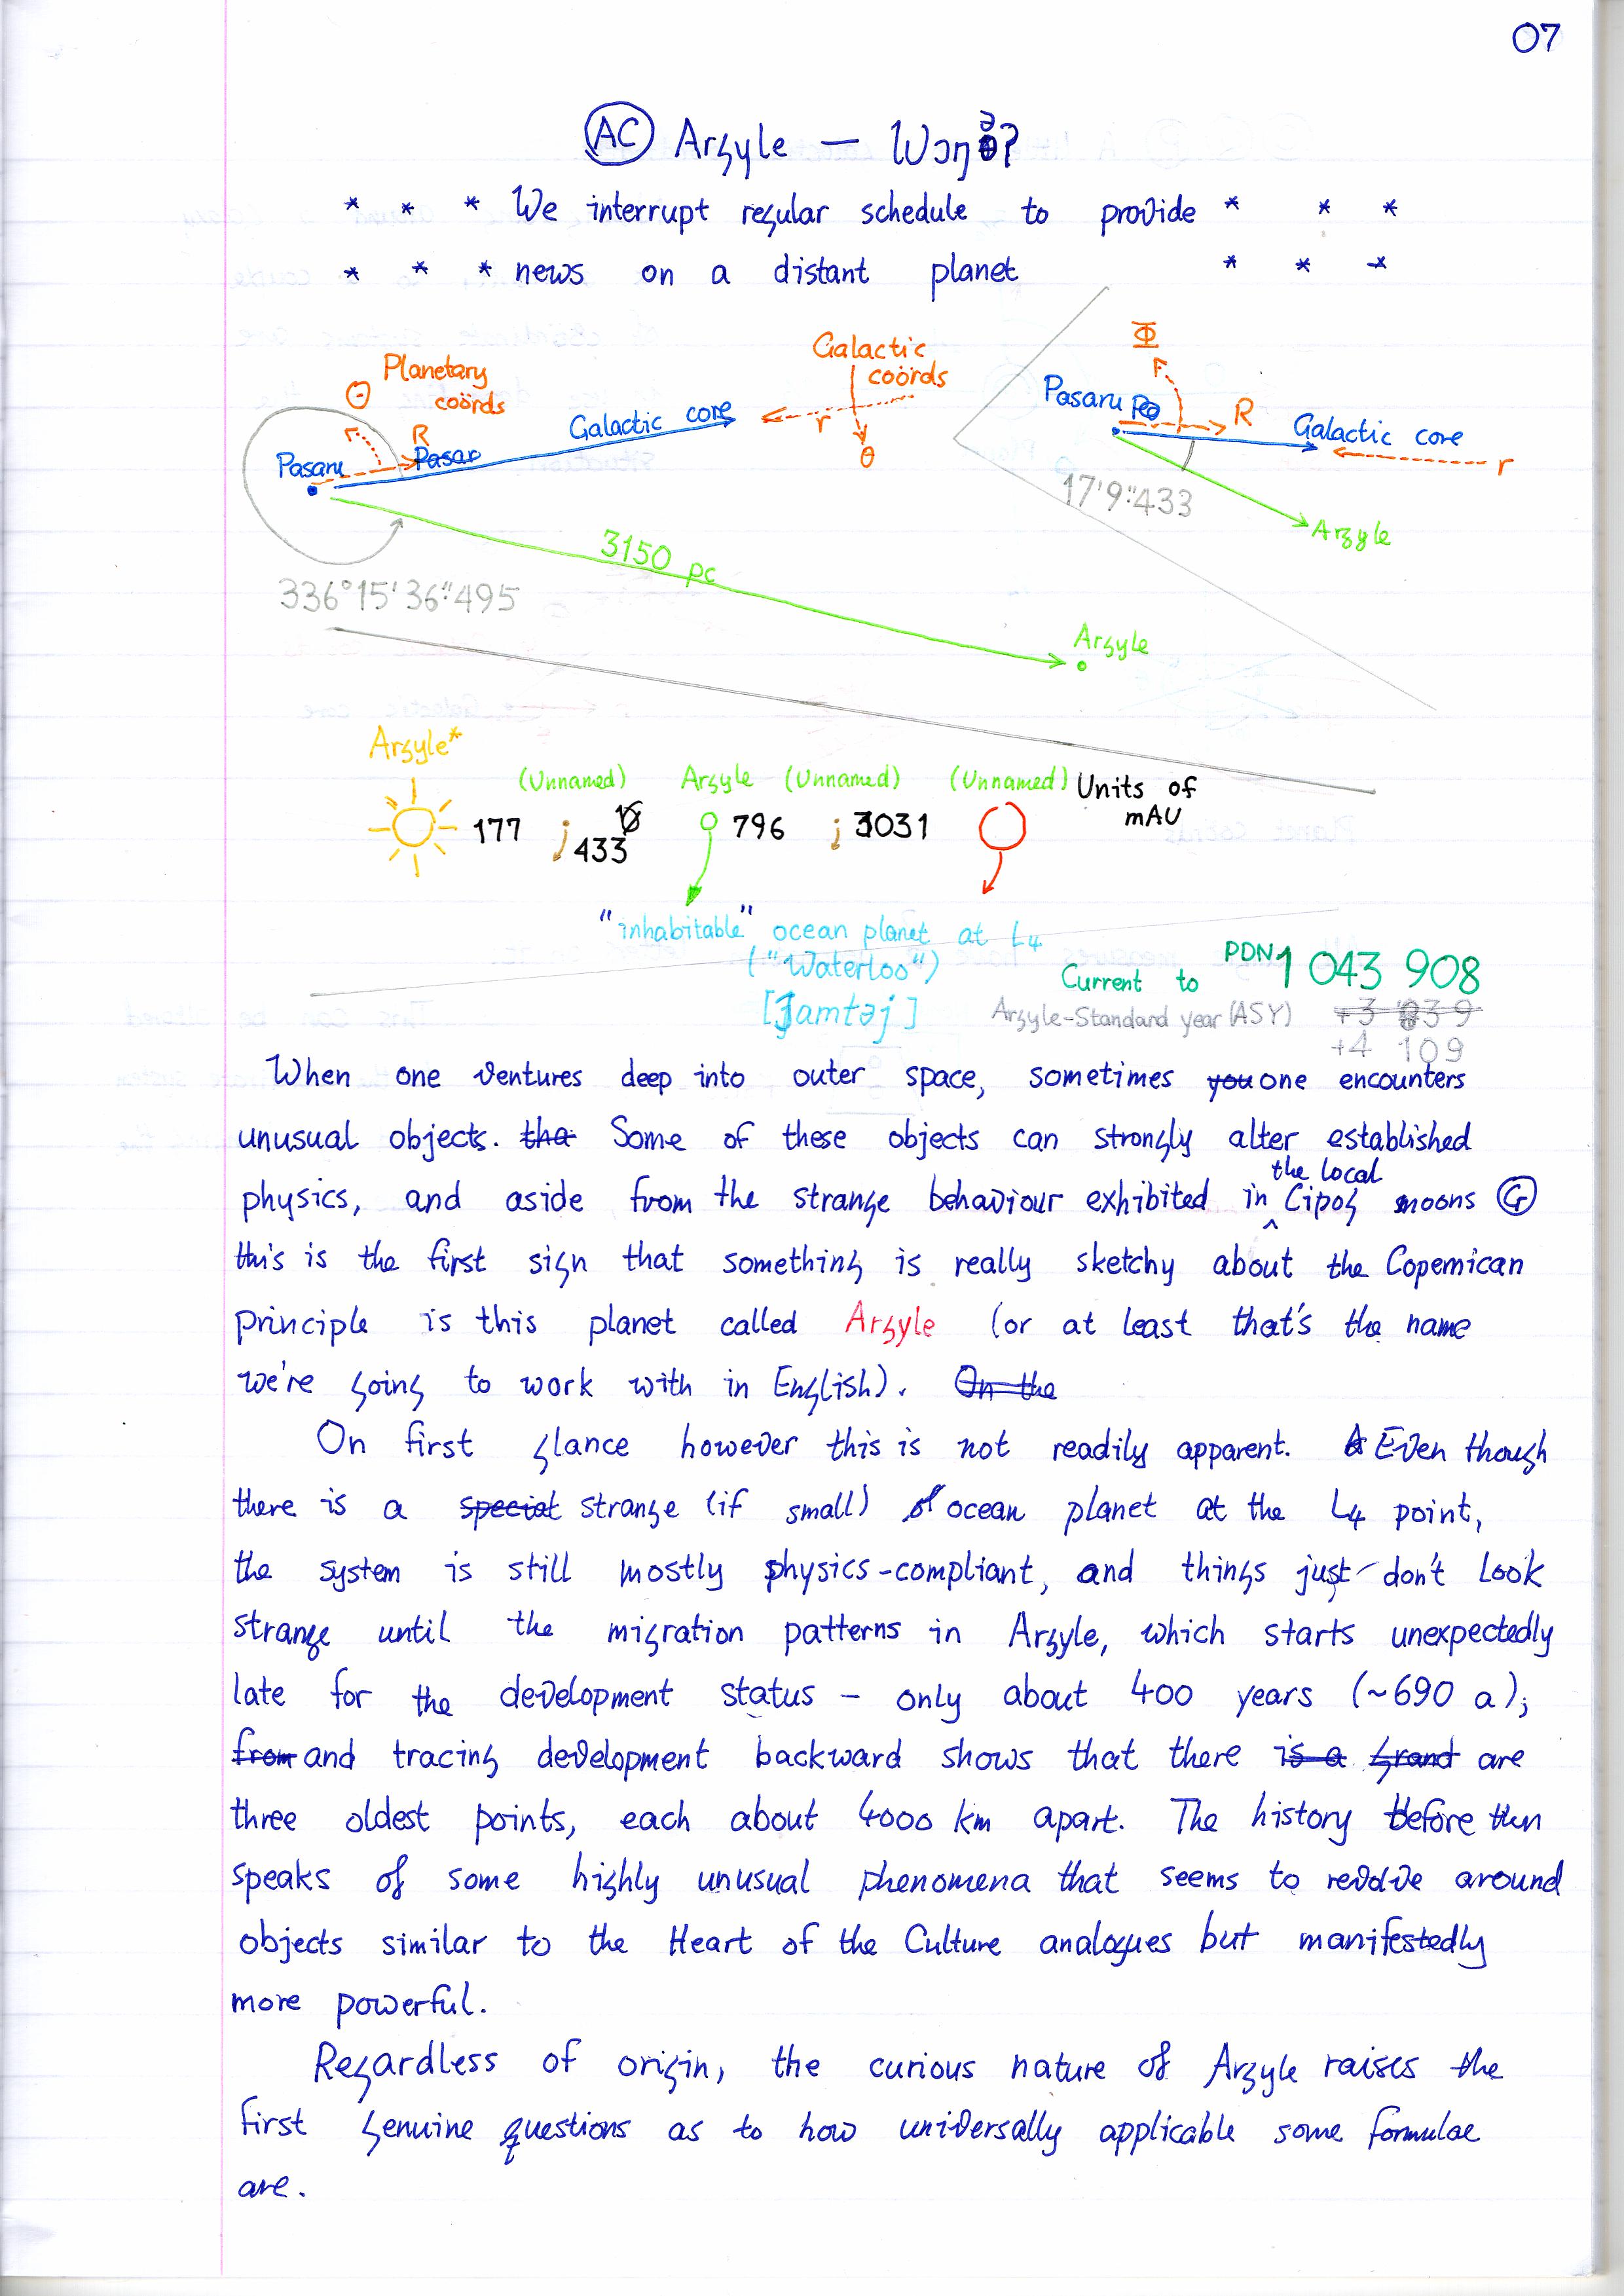 07
AC Argyle —
* * * We interrupt regular schedule to provide * * *
* * * news on a distant planet * * *
Planetary coörds
Θ
R
Pasaru
Pasar
Galactic core
Galactic coörds
r
θ
336°15'36"495
3150 pc
Argyle
Φ
Pasaru
R
Galactic core
r
17'9"433
Argyle
Argyle*
(Unnamed) Argyle (Unnamed) (Unnamed) Units of mAU
177 433 796 3031
"inhabitable" ocean planet at L4
("Waterloo")
[Jamtəj]
Current to PDN 1 043 908
Argyle-Standard year (ASY) +3 039
+4 109
When one ventures deep into outer space, sometimes you one encounters
unusual objects. tha Some of these objects can strongly alter established
physics, and aside from the strange behaviour exhibited in the local Cipog moons G
this is the first sign that something is really sketchy about the Copernican
principle is this planet called Argyle (or at least that's the name
we're going to work with in English). On the
On first glance however this is not readily apparent. Even though
there is a special strange (if small) ocean planet at the L4 point,
the system is still mostly physics-compliant, and things just don't look
strange until the migration patterns in Argyle, which starts unexpectedly
late for the development status – only about 400 years (~690 a);
from and tracing development backward shows that there is a grand are
three oldest points, each about 4000 km apart. The history before then
speaks of some highly unusual phenomena that seems to revolve around
objects similar to the Heart of the Culture analogues but manifestedly
more powerful.
Regardless of origin, the curious nature of Argyle raises the
first genuine questions as to how universally applicable some formulae
are.